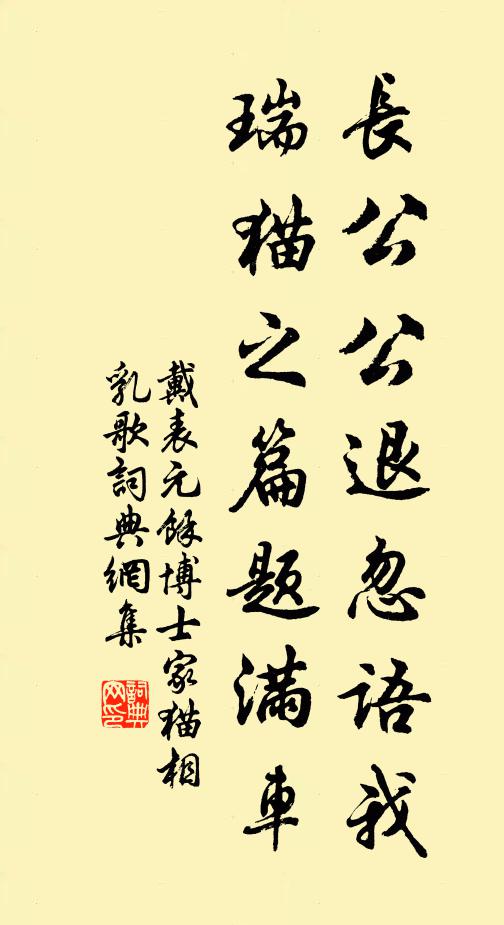 長公公退忽语我
瑞猫之篇题满車
戴表元餘博士家猫相
乳歌詞典網集
詞典
网印